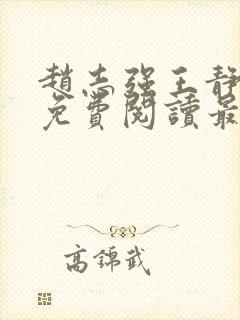 趙志強王靜
免費閱讀最
高錦武